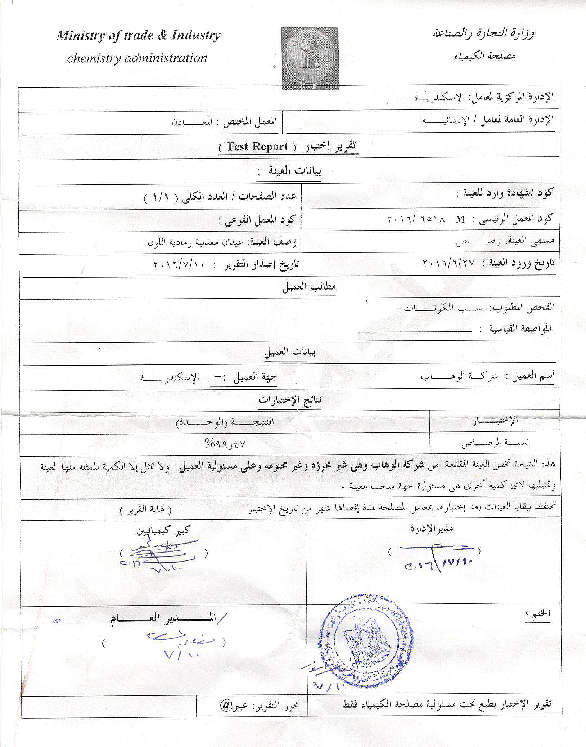 Ministry of trade & Industry
chemistry administration
وزارة التجارة والصناعة
مصلحة الكيمياء
الإدارة المركزية لمعامل: الاسكندرية
الإدارة العامة لمعامل /
المعمل المختص :
تقرير إختبار ( Test Report )
بيانات العينة :
كود الشهادة وارد للعينة :
عدد الصفحات / العدد الكلى ( ١/١ )
كود المعمل الرئيسى : M ٦٥٢٨ /٢٠١٦
كود المعمل الفرعى :
مسمى العينة: رصاص
وصف العينة: معدنية رمادية اللون
تاريخ ورود العينة : ٢٠١٦/٦/٢٧
تاريخ إصدار التقرير : ٢٠١٦/٧/١٠
مطالب العميل
الفحص المطلوب: نسب المكونات
المواصفة القياسية :
بيانات العميل
اسم العميل : شركة الوهاب
جهة العميل :- الاسكندرية
نتائج الإختبارات
الإختبار
النتيجة والوحدة
نسبة الرصاص
هذه النتيجة تخص العينة المقدمة من شركة الوهاب وهى غير محرزه وغير مختومه وعلى مسئولية العميل ولا تمثل إلا الكمية الممثله منها العينة
وتمثيلها لأى كمية أخرى هى مسئولية جهة سحب العينة .
تحتفظ ببقايا العينات بعد إختبارها بمعامل المصلحة مدة أقصاها شهر من تاريخ الإختبار
( نهاية التقرير )
مدير الإدارة
كبير كيميائيين
٢٠١٦/٧/١٠
٧/١٠
المدير العام
٧/١٠
الختم:
٧/١٠
تقرير الإختبار يطبع تحت مسئولية مصلحة الكيمياء فقط
محرر التقرير: عبير